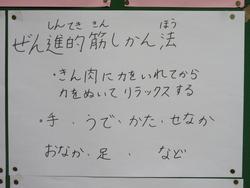 しんてき きん ほう
ぜん進的筋しかん法
・きん肉に力をいれてから
力をぬいてリラックスする
・手．うで．かた．せなか
おなか．足． など